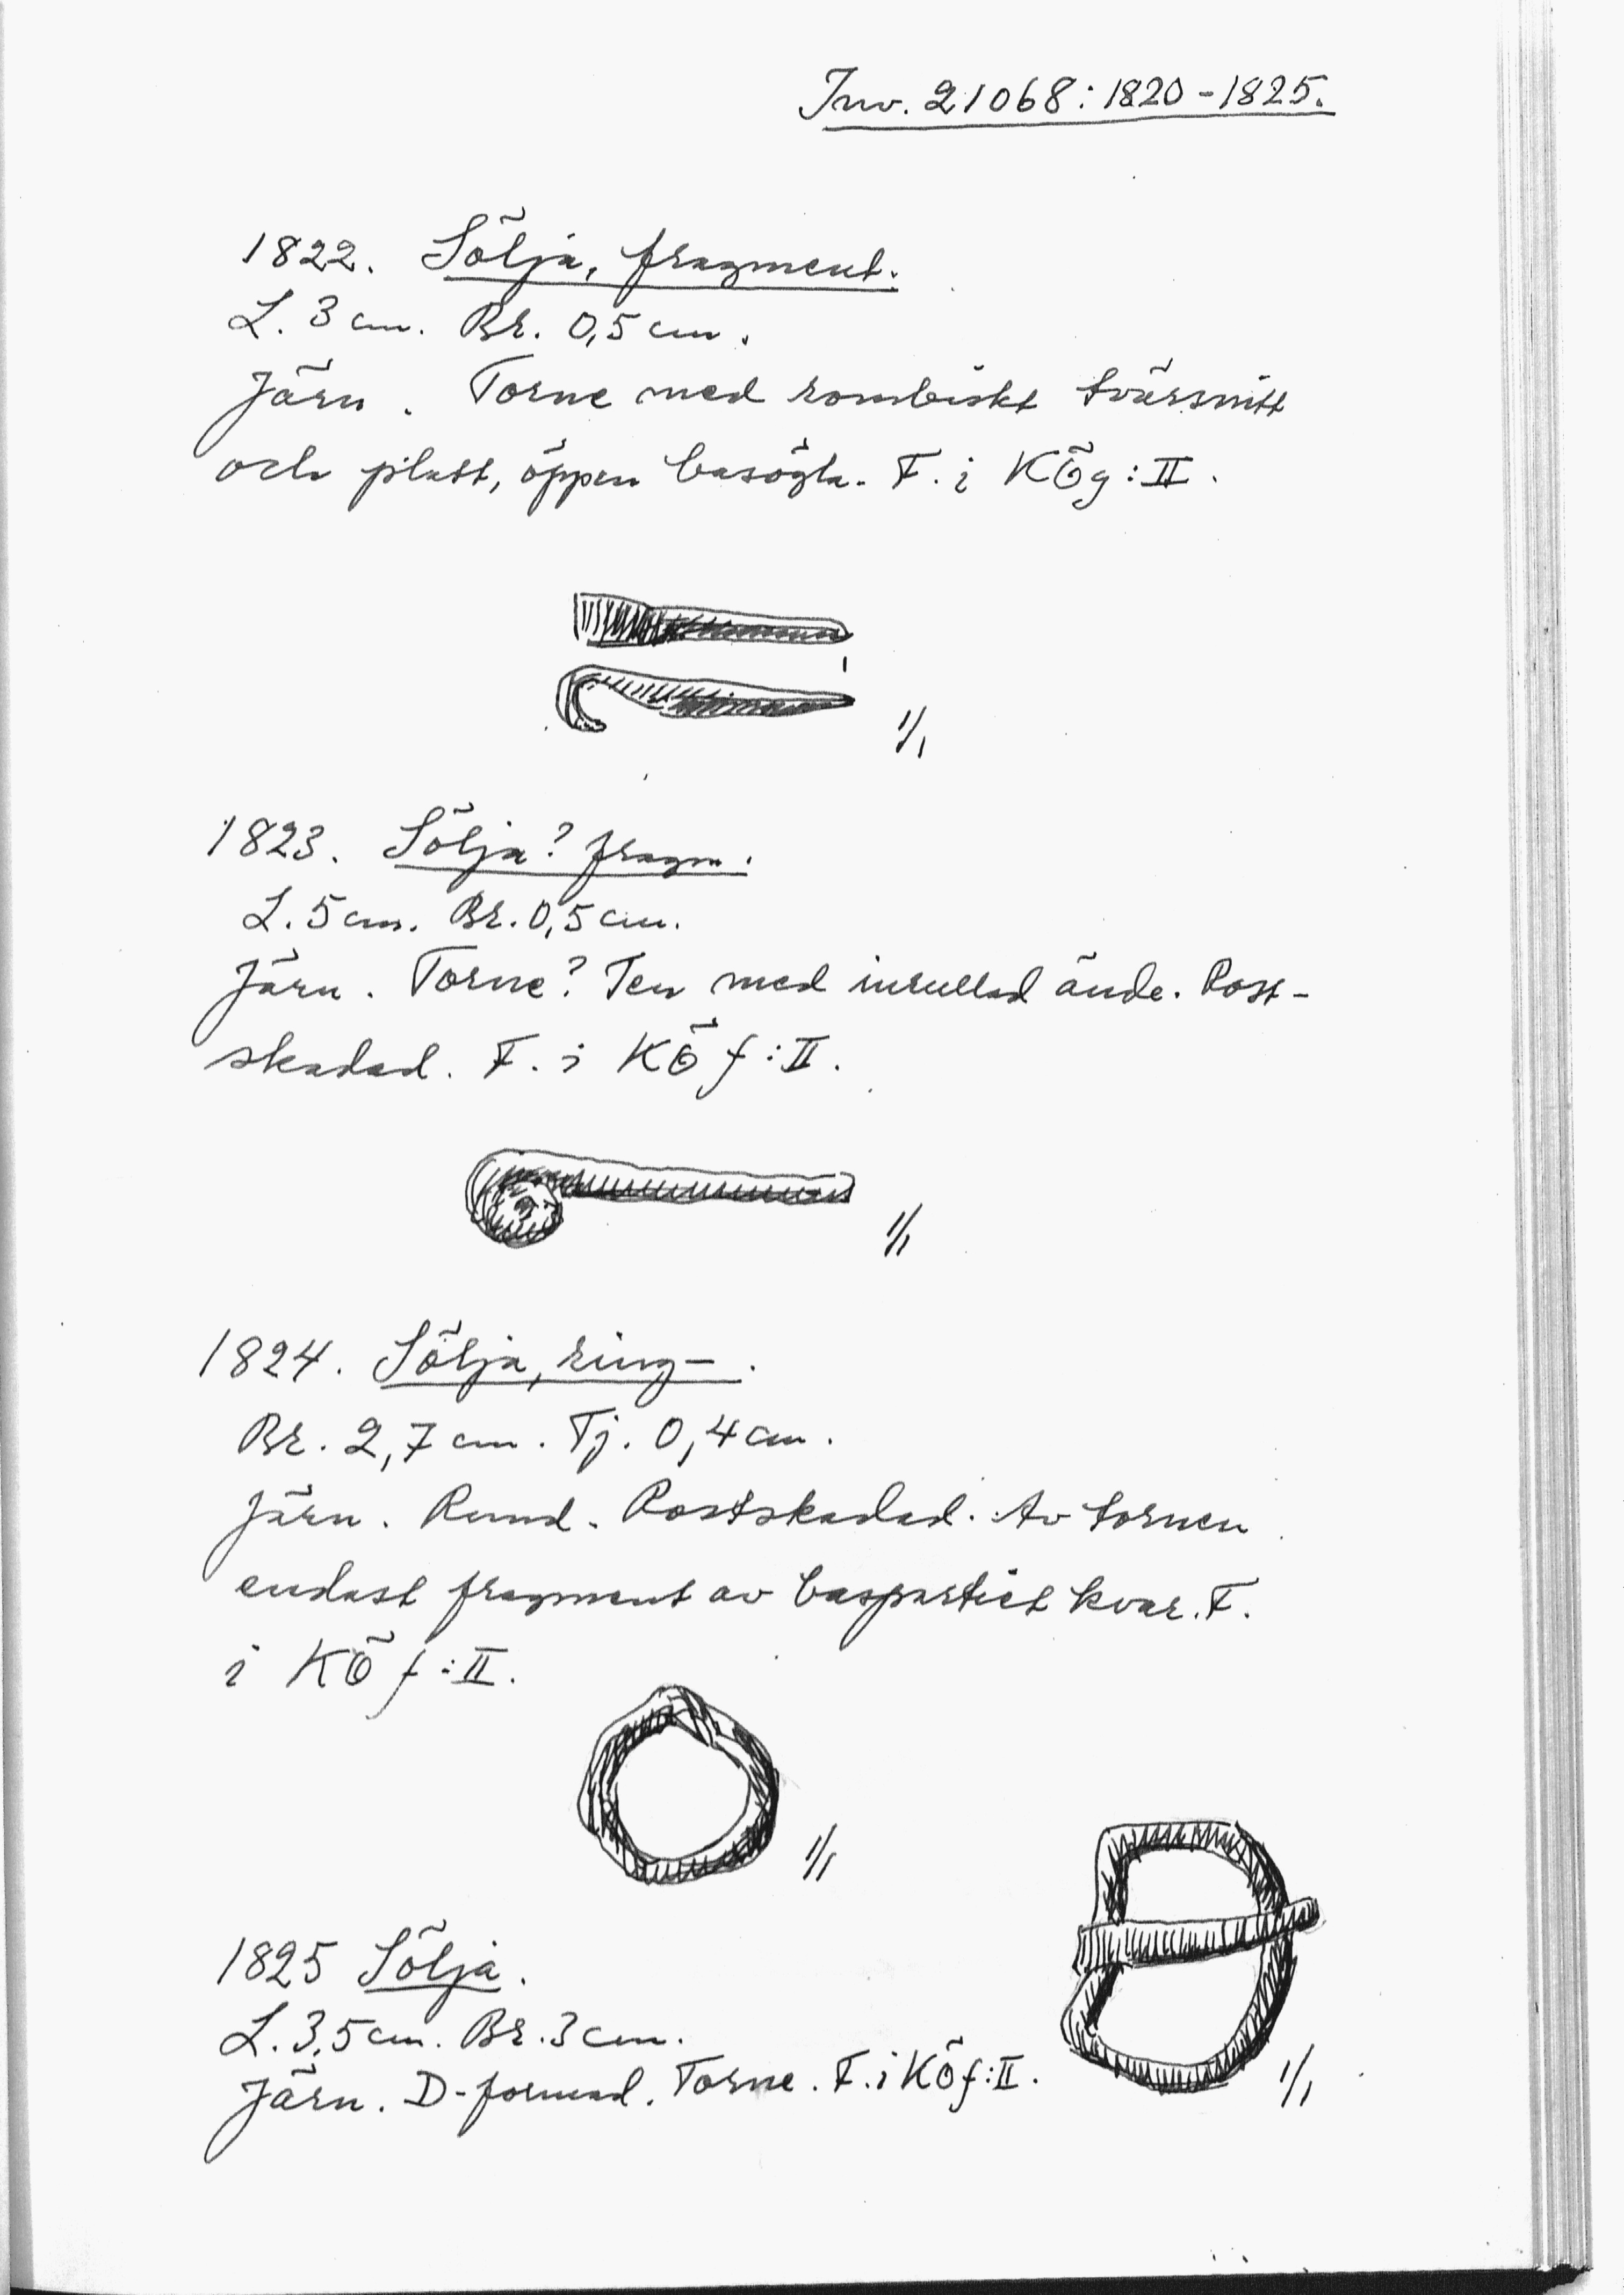 Inv. 21068:1820-1825.
1822. Sölja, fragment.
L. 3 cm. Br. 0,5 cm.
Järn. Torne med rombiskt tvärsnitt
och platt, öppen basögla. F. i KÖg:II.
1/1
1823. Sölja? fragm.
L. 5 cm. Br. 0,5 cm.
Järn. Torne? Ten med inrullad ände. Rost-
skadad. F. i KÖf:II.
1/1
1824. Sölja, ring-.
Br. 2,7 cm. Tj. 0,4 cm.
Järn. Rund. Rostskadad. Av tornen
endast fragment av baspartiet kvar. F.
i KÖf:II.
1/1
1825 Sölja.
L. 3,5 cm. Br. 3 cm.
Järn. D-formad. Torne. F. i KÖf:II.
1/1